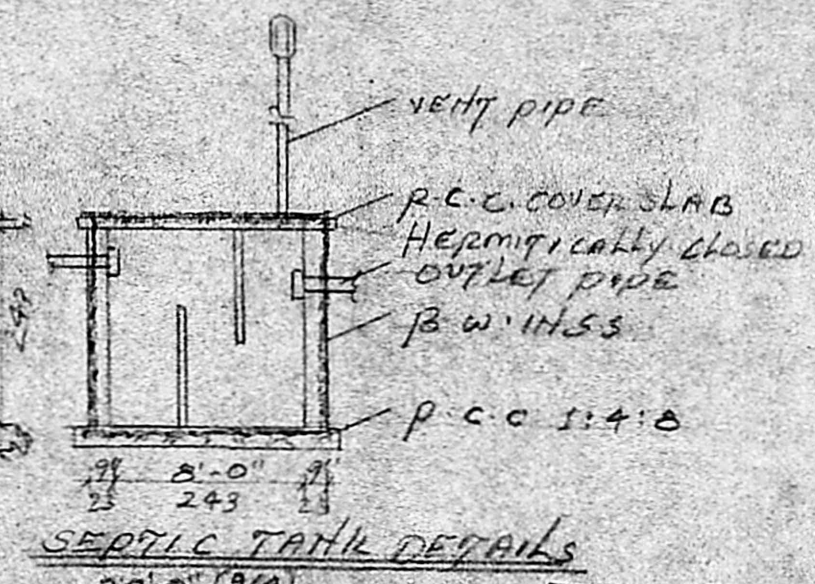 VENT PIPE
R.C.C. COVER SLAB
HERMITICALLY CLOSED
OUTLET PIPE
B.W. IN S S
P.C.C 1:4:8
243
9" 8'-0" 9"
23 243 23
SEPTIC TANK DETAILS